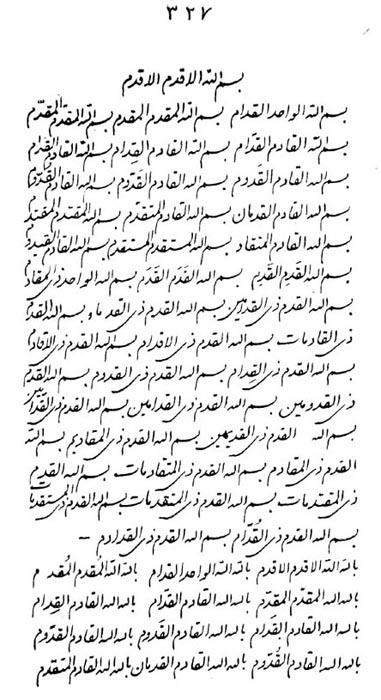 ۳۲۷
بسم الله الاقدم الاقدم
بسم الله الواحد القدام بسم الله المقدم المقدم بسم الله المقدم المقدم
بسم الله القادم القدام بسم الله القادم القدام بسم الله القادم القدام
بسم الله القادم القدروم بسم الله القادم القدوم بسم الله القادم
بسم الله القادم القدمان بسم الله القادم المتقدم بسم الله المقتدم المقتدم
بسم الله القادم المتقاد بسم الله المستقدم المستقدم بسم الله القادم القيدوم
بسم الله القدم القدم بسم الله القدم القدم بسم الله الواحد ذی المقاد
بسم الله القدم ذی القدامین بسم الله القدم ذی القدماء بسم الله القدم
ذی القادمات بسم الله القدم ذی الاقدام بسم الله القدم ذی الاقادم
بسم الله القدم ذی القدام بسم الله القدم ذی القدوم بسم الله القدم
ذی القدومین بسم الله القدم ذی القدامین بسم الله القدم ذی
بسم الله القدم ذی القدیمین بسم الله القدم ذی المقادیم بسم الله
القدم ذی المقادم بسم الله القدم ذی المتقادمات بسم الله القدم
ذی المقتدمات بسم الله القدم ذی المتقدمات بسم الله القدم ذی المستقدمات
بسم الله القدم ذی القدام بسم الله القدم ذی القدادم
بالله الله الاقدم الاقدم بالله الله الواحد القدام بالله الله المقدم المقدم
بالله الله المقدم المقدم بالله الله القادم القدام بالله الله القادم القدام
بالله الله القادم القدام بالله الله القادم القدوم بالله الله القادم القدوم
بالله الله القادم القدوم بالله الله القادم القدمان بالله الله القادم المتقدم